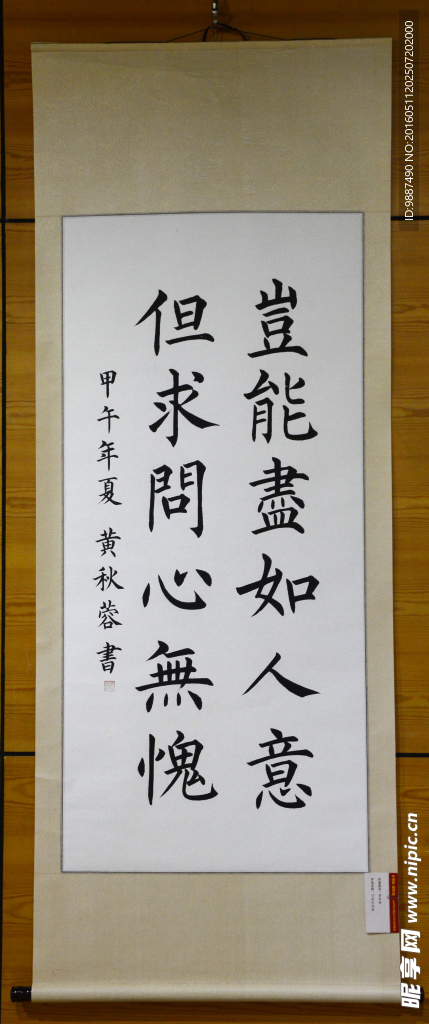 豈能盡如人意
但求問心無愧
甲午年夏 黄秋蓉書
ID:9887490 NO:20160511202507202000
昵享网 www.nipic.cn